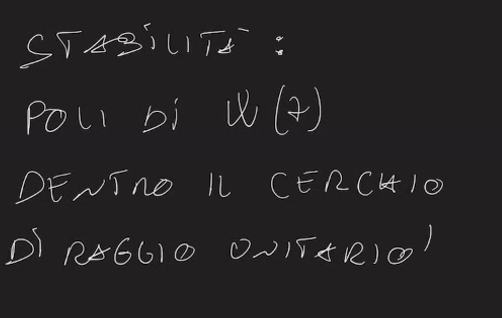 STABILITÀ:
POLI DI W(z)
DENTRO IL CERCHIO
DI RAGGIO UNITARIO